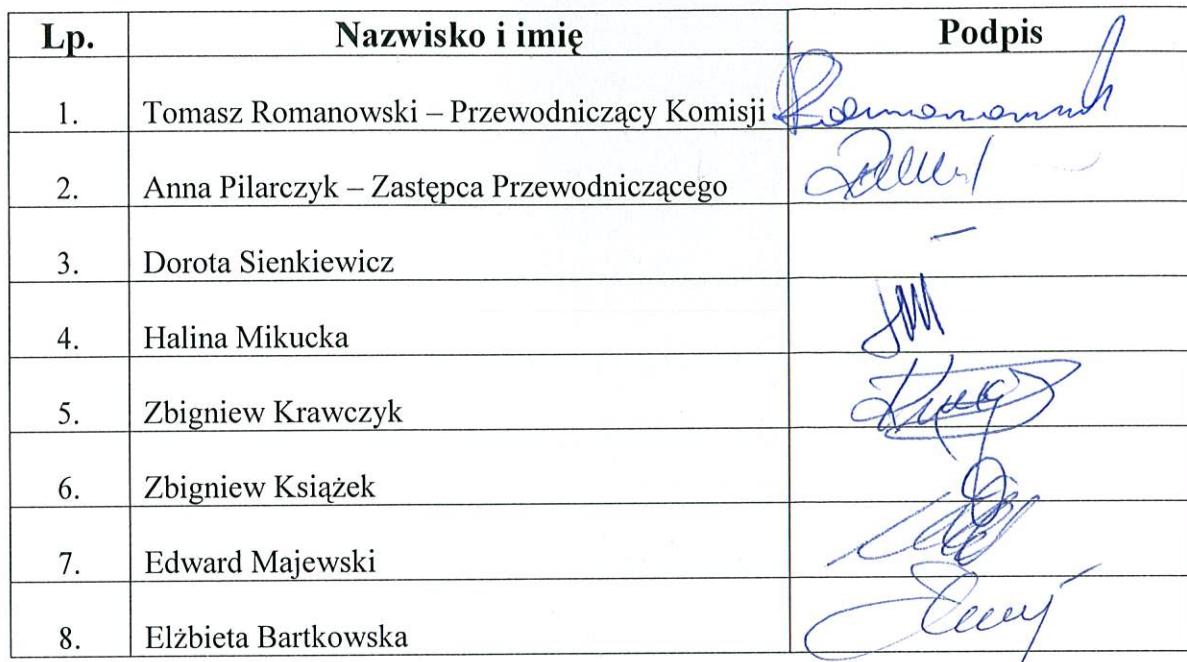 Lp. Nazwisko i imię Podpis
1. Tomasz Romanowski – Przewodniczący Komisji
2. Anna Pilarczyk – Zastępca Przewodniczącego
3. Dorota Sienkiewicz –
4. Halina Mikucka
5. Zbigniew Krawczyk
6. Zbigniew Książek
7. Edward Majewski
8. Elżbieta Bartkowska